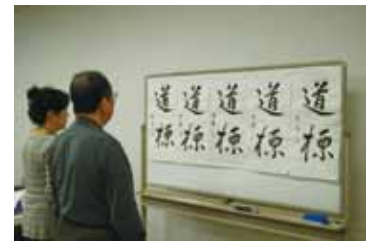 道標
道標
道標
道標
道標